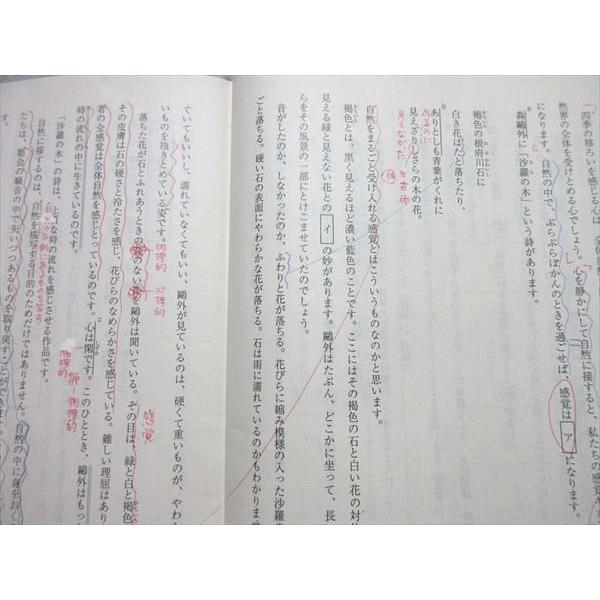 「四季の移ろいを感じる心は、全体
然界の全体を受けとめる心でしょう。心を静かにして自然に接すると、私たちの感覚
になります。自然の中で、ぶらぶらぽかんのときを過ごせば、感覚は ア になります。
森鷗外に「沙羅の木」という詩があります。
褐色の根府川石に
かちいろ ねぶかは
白き花はたと落ちたり、
b
ありとしも青葉がくれに
見えざりしさらの木の花。
あるのに
見えなかった
自然をまるごと受け入れる感覚とはこういうものなのかと思います。
褐色とは、黒く見えるほど濃い藍色のことです。ここにはその褐色の石と白い花の対
見える緑と見えない花との イ の妙があります。鷗外はたぶん、どこかに坐って、長
らをその風景の一部にとけこませていたのでしょう。
音がしたのか、しなかったのか、ふわりと花が落ちる。花びらに縮み模様の入った沙羅の
ごと落ちる。硬い石の表面にやわらかな花が落ちる。石は雨に濡れているのかもわかりませ
ていてもいいし、濡れていなくてもいい、鷗外が見ているのは、硬くて重いものが、やわら
いものを抱きとめている姿です。
落ちた花が石とふれあうときの音のない音を鷗外は聞いている。その目は、緑と白と褐色
物理的
心理的
その皮膚は石の硬さと冷たさを感じ、花びらのなめらかさを感じている。難しい理屈はあり
感覚
者の全感覚は全体自然を感じとっているのです。心は閑です。このひととき、鷗外はもっ
c
時の流れの中に生きているのです。
物理的
静―物理的
「沙羅の木」の詩は、
時の流れを感じさせる作品です。
自然に接するのは、自然を描写する目的のためだけではありません。自然の中に身をおく
たちは、都会の騒音の中で失いつつあるものを取り戻すことができます。
す。